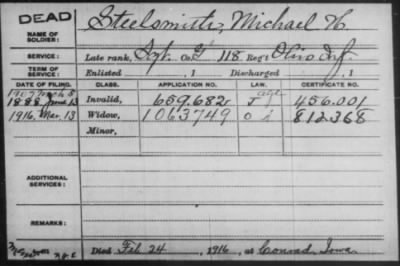 DEAD
NAME OF SOLDIER: Steelsmith, Michael H
SERVICE: Late rank, Sgt. Co. G 118 Reg't Ohio Inf.
TERM OF SERVICE: Enlisted , 1 Discharged , 1
DATE OF FILING. CLASS. APPLICATION NO. LAW. CERTIFICATE NO.
1907 Mch 5 age
1888 June 13 Invalid, 659.682 J 456.001
1916, Mar. 13 Widow, 1063749 812.368
Minor,
ADDITIONAL SERVICES:
REMARKS:
Died Feb 24 , 1916, at Conrad, Iowa